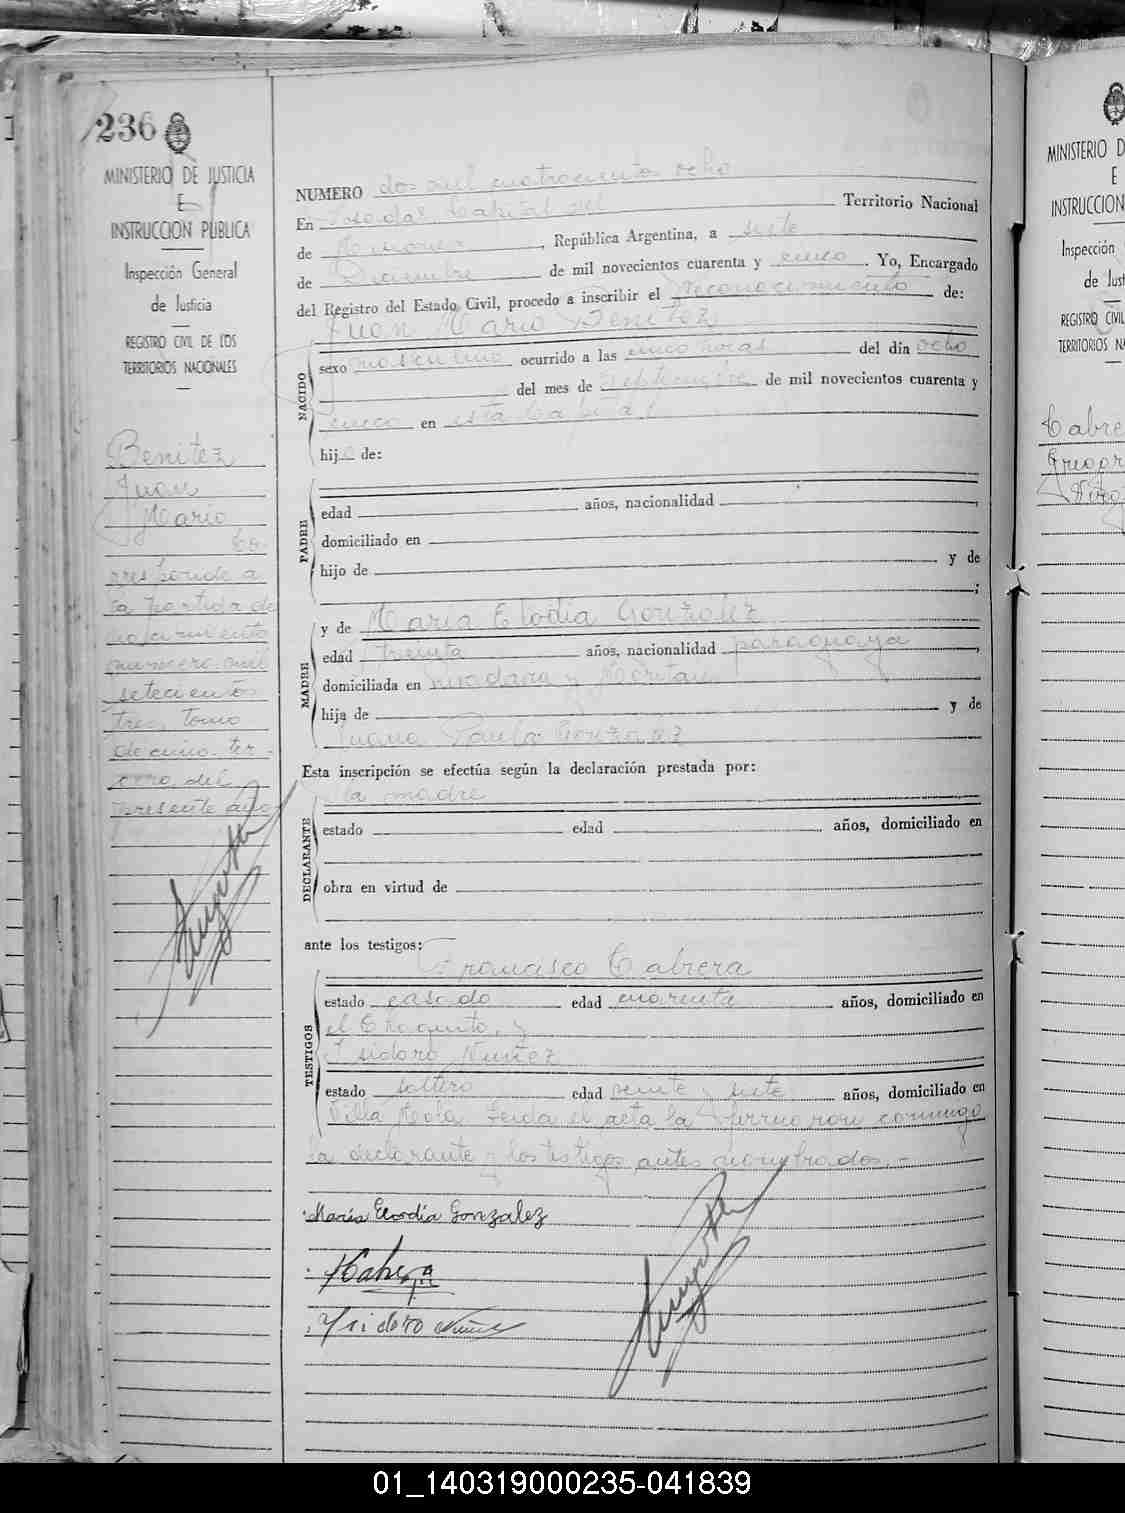 236
MINISTERIO DE JUSTICIA
E
INSTRUCCION PUBLICA
Inspección General
de Justicia
REGISTRO CIVIL DE LOS
TERRITORIOS NACIONALES
Benitez
Juan
Mario
Co-
rresponde a
la partida de
nacimiento
numero mil
setecientos
tres, tomo
decimo ter-
cero del
presente año
NUMERO dos mil cuatrocientos ocho
En Posadas Capital del Territorio Nacional
de Misiones, República Argentina, a siete
de Diciembre de mil novecientos cuarenta y cinco Yo, Encargado
del Registro del Estado Civil, procedo a inscribir el reconocimiento de:
Juan Mario Benitez
NACIDO
sexo masculino ocurrido a las cinco horas del día ocho
del mes de Septiembre de mil novecientos cuarenta y
cinco en esta Capital
hijo de:
PADRE
edad años, nacionalidad
domiciliado en
hijo de y de
;
y de Maria Elodia Gonzalez
MADRE
edad treinta años, nacionalidad paraguaya
domiciliada en y
hija de y de
Juana Paula Gonzalez
Esta inscripción se efectúa según la declaración prestada por:
la madre
DECLARANTE
estado edad años, domiciliado en
obra en virtud de
ante los testigos:
Francisco Cabrera
TESTIGOS
estado casado edad cuarenta años, domiciliado en
el Chaquito, y
Isidoro Nuñez
estado soltero edad veinte y siete años, domiciliado en
Villa Leida el acta la firmaron conmigo
la declarante y los testigos antes nombrados.-
Maria Elordia Gonzalez
Ysidoro Nuñez
MINISTERIO D
E
INSTRUCCION
Inspección
de Just
REGISTRO CIVIL
TERRITORIOS NA
Cabre
Gregor
01_140319000235-041839